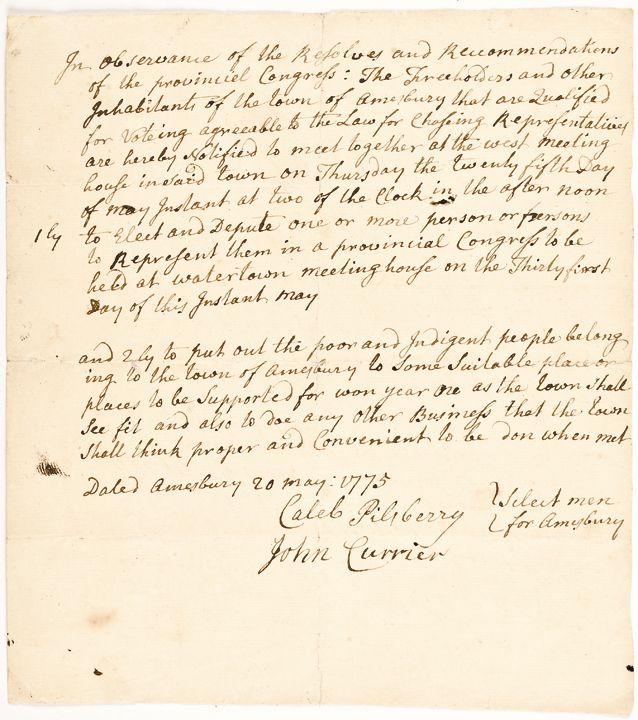 In observance of the Resolves and Reccommendations
of the provinciel Congress: The Freeholders and other
Inhabitants of the town of Amesbury that are Qualified
for Voteing agreeable to the Law for Chosing Representatives
are hereby Notified to meet together at the west meeting
house in said town on Thursday the twenty fifth Day
of may Instant at two of the Clock in the after noon
1ly to Elect and Depute one or more person or persons
to Represent them in a provincial Congress to be
held at watertown meeting house on the Thirty first
Day of this Instant may
and 2ly to put out the poor and Indigent people belong
ing to the town of Amesbury to some Suitable place or
places to be Supported for won year ore as the town Shall
See fit and also to doe any other Business that the town
Shall think proper and Convenient to be don when met
Dated Amesbury 20 may: 1775
Caleb Pilsberry
John Currier
Select men
for Amesbury